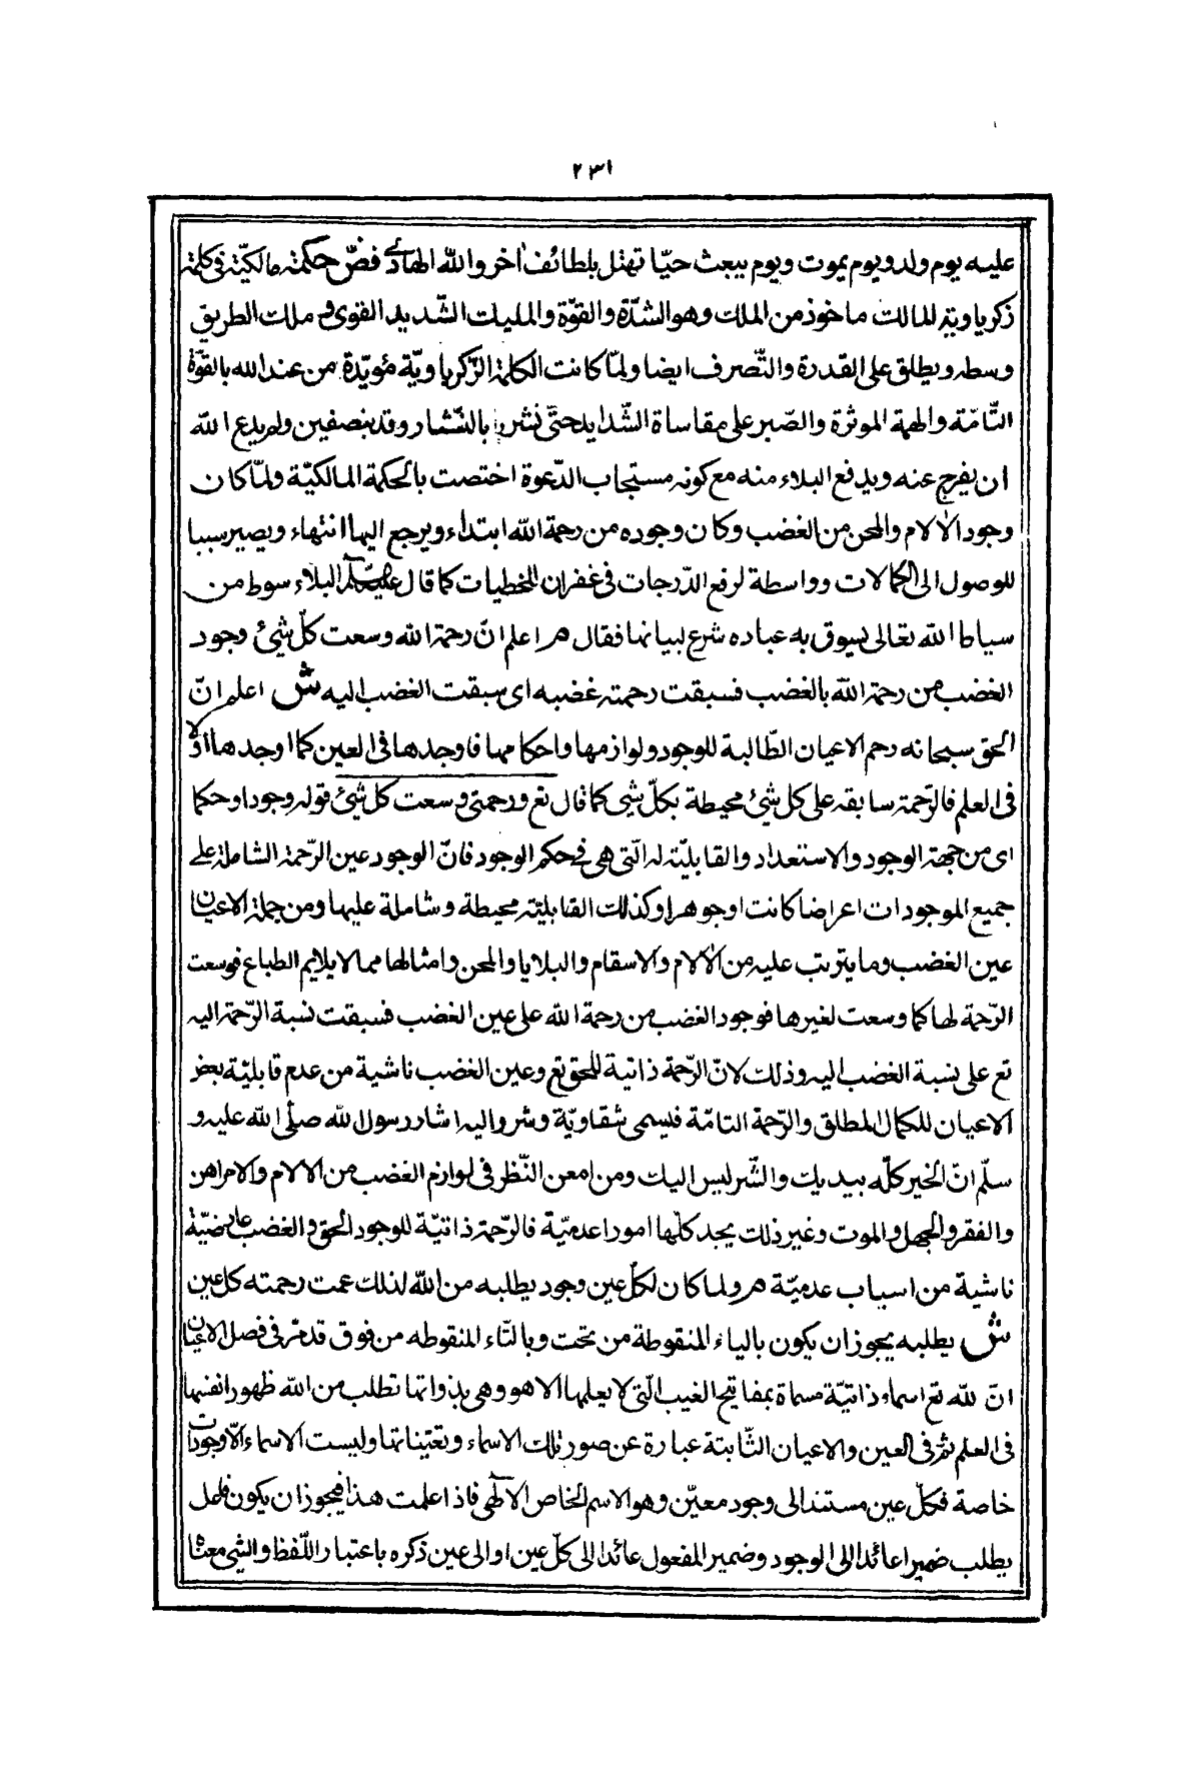 ٢٣١
عليه يوم ولد ويوم يموت ويوم يبعث حيّا تهتل بلطائف اخر والله الهادى فصّ حكمة مالكيّة فى كلمة
زكرياوية المالك ماخوذ من الملك وهو الشدّة والقوّة والمليك الشّديد القوى و ملك الطريق
وسطه ويطلق على القدرة والتّصرف ايضا ولمّا كانت الكلمة الزّكرياويّة مؤيّدة من عند الله بالقوّة
التّامّة والهمة الموثرة والصّبر على مقاساة الشّدايد حتّى نشر بالنّشار وقد بنصفين ولم يدع الله
ان يفرج عنه ويدفع البلاء منه مع كونه مستجاب الدّعوة اختصت بالحكمة المالكيّة ولمّا كان
وجود الالام والمحن من الغضب وكان وجوده من رحمة الله ابتداء ويرجع اليها انتهاء ويصير سببا
للوصول الى الكمالات وواسطة لرفع الدّرجات فى غفران الخطيات كما قال البلاء سوط من
سياط الله تعالى يسوق به عباده شرع لبيانها فقال هر اعلم انّ رحمة الله وسعت كلّ شئ وجود
الغضب من رحمة الله بالغضب فسبقت رحمته غضبه اى سبقت الغضب اليه ش اعلم انّ
الحق سبحانه رحم الاعيان الطّالبة للوجود ولوازمها واحكامها فاوجدها فى العين كما اوجدها اوّلا
فى العلم فالرّحمة سابقه على كل شئ محيطة بكلّ شى كما قال تع ورحمتى وسعت كل شئ قوله وجودا وحكما
اى من جهة الوجود والاستعداد والقابليّة له الّتى هى فى حكم الوجود فانّ الوجود عين الرّحمة الشاملة على
جميع الموجودات اعراضا كانت او جوهرا وكذلك القابليّة محيطة وشاملة عليها ومن جملة الاعيان
عين الغضب وما يترتب عليه من الالام والاسقام والبلايا والمحن وامثالها مما لا يلايم الطباع فوسعت
الرّحمة لها كما وسعت لغيرها فوجود الغضب من رحمة الله على عين الغضب فسبقت نسبة الرّحمة اليه
تع على نسبة الغضب اليه وذلك لانّ الرّحمة ذاتية للحق تع وعين الغضب ناشية من عدم قابليّة بعض
الاعيان للكمال المطلق والرّحمة التامّة فيسمى شقاويّة وشر واليه اشار رسول الله صلّى الله عليه و
سلّم انّ الخير كلّه بيديك والشّر ليس اليك ومن امعن النّظر فى لوازم الغضب من الالام والامراض
والفقر والجهل والموت وغير ذلك يجد كلّها امورا عدميّة فالرّحمة ذاتيّة للوجود الحق والغضب عارضيّة
ناشية من اسباب عدميّة هر ولما كان لكلّ عين وجود يطلبه من الله لذلك عمت رحمته كل عين
ش يطلبه يجوز ان يكون بالياء المنقوطة من تحت وبالتّاء المنقوطه من فوق قد مرّ فى فصل الاعيان
انّ لله تع اسماء ذاتيّة مسماة بمفاتيح الغيب الّتى لا يعلمها الا هو وهى بذواتها تطلب من الله ظهور انفسها
فى العلم ثمّ فى العين والاعيان الثّابتة عبارة عن صور تلك الاسماء وتعيّناتها وليست الاسماء الّا وجودات
خاصة فكلّ عين مستند الى وجود معيّن وهو الاسم الخاص الالهى فاذا علمت هذا فيجوز ان يكون فاعل
يطلب ضميرا عائدا الى الوجود وضمير المفعول عائدا الى كلّ عين او الى عين ذكره باعتبار اللّفظ والشى معناه